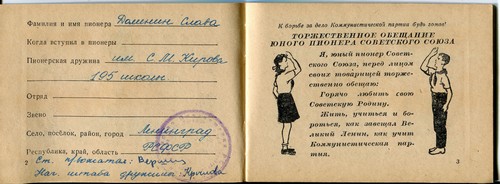 Фамилия и имя пионера Доминин Слава
Когда вступил в пионеры
Пионерская дружина им С. М. Кирова
195 школы
Отряд
Звено
Село, посёлок, район, город Ленинград
Республика, край, область РСФСР
Ст. вожатая:
Нач. штаба дружины: Крылова
2
К борьбе за дело Коммунистической партии будь готов!
ТОРЖЕСТВЕННОЕ ОБЕЩАНИЕ
ЮНОГО ПИОНЕРА СОВЕТСКОГО СОЮЗА
Я, юный пионер Совет-
ского Союза, перед лицом
своих товарищей торже-
ственно обещаю:
Горячо любить свою
Советскую Родину.
Жить, учиться и бо-
роться, как завещал Ве-
ликий Ленин, как учит
Коммунистическая пар-
тия.
3